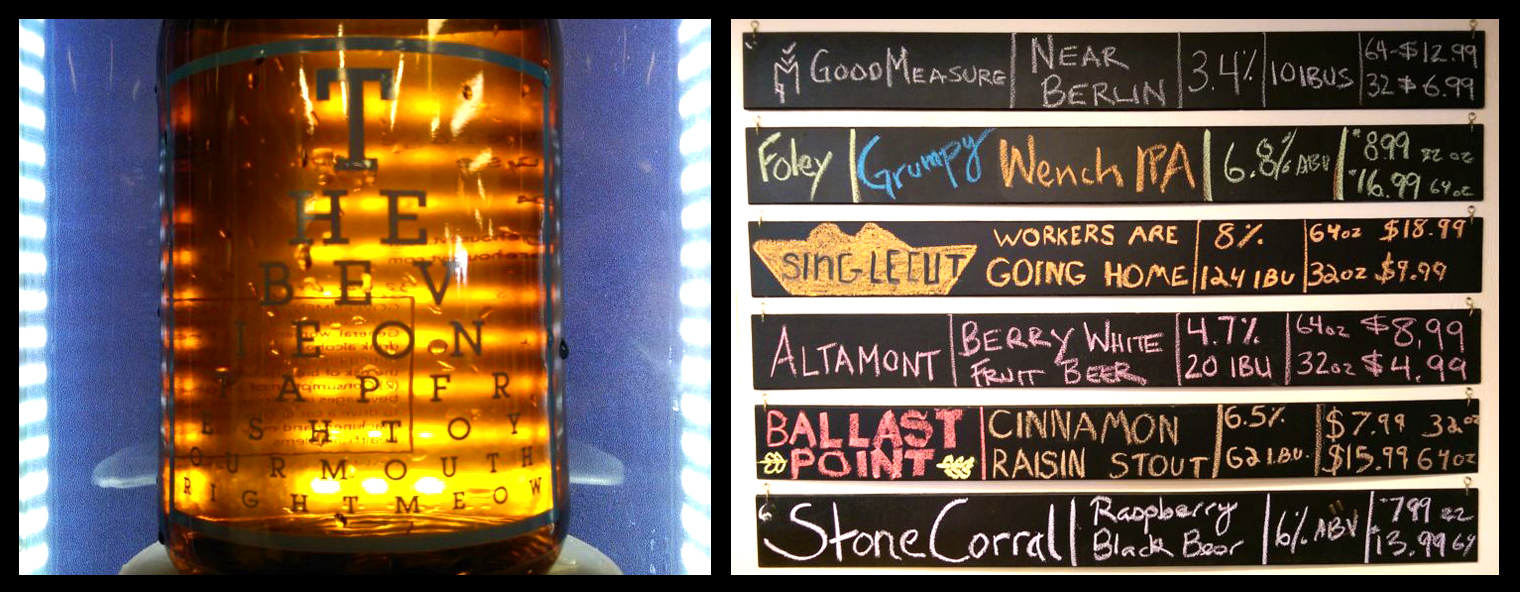 T
HE
BEV
IEON
TAPFR
ESHTOY
OURMOUTH
RIGHTMEOW
GOODMEASURE NEAR BERLIN 3.4% 10IBUS 64-$12.99
32 $6.99
Foley Grumpy Wench IPA 6.8% ABV $8.99 32 oz
$16.99 64oz
SINGLECUT WORKERS ARE 8% 64oz $18.99
GOING HOME 124 IBU 32oz $9.99
ALTAMONT BERRY WHITE 4.7% 64oz $8.99
FRUIT BEER 20 IBU 32oz $4.99
BALLAST CINNAMON 6.5% $7.99 32oz
POINT RAISIN STOUT 62 I.BU. $15.99 64oz
StoneCorral Raspberry 6% ABV 799 32
Black Beer 13.99 64